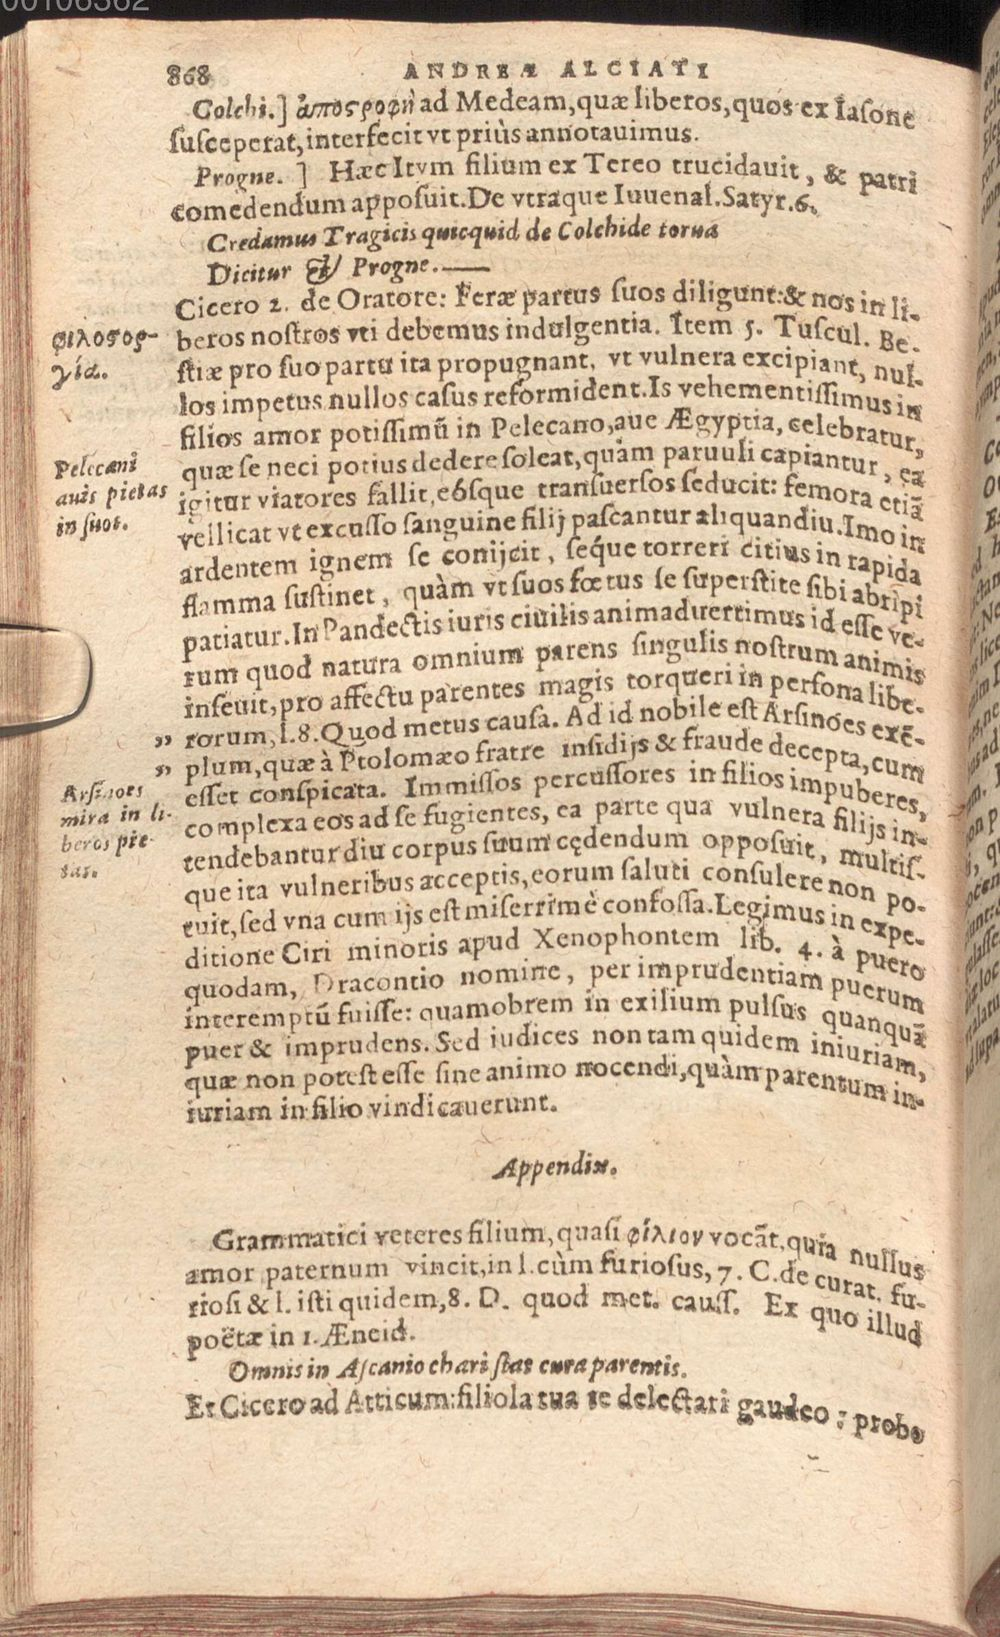 00106362
868 ANDREÆ ALCIATI
Colchi.] ἀποςροφὴ ad Medeam, quæ liberos, quos ex Iaſone
ſuſceperat, interfecit vt priùs annotauimus.
Progne. ] Hæc Itym filium ex Tereo trucidauit, & patri
comedendum appoſuit. De vtraque Iuuenal. Satyr. 6.
Credamus Tragicis quicquid de Colchide torua
Dicitur & Progne. —
Cicero 2. de Oratore: Feræ partus ſuos diligunt: & nos in li-
beros noſtros vti debemus indulgentia. Item 5. Tuſcul. Be-
ſtiæ pro ſuo partu ita propugnant, vt vulnera excipiant, nul-
los impetus nullos caſus reformident. Is vehementiſſimus in
filios amor potiſſimũ in Pelecano, aue Ægyptia, celebratur,
quæ ſe neci potius dedere ſoleat, quàm paruuli capiantur, ea
igitur viatores fallit, eóſque tranſuerſos ſeducit: femora etiã
vellicat vt excuſſo ſanguine filij paſcantur aliquandiu. Imo in
ardentem ignem ſe conijcit, ſeque torreri citius in rapida
flamma ſuſtinet, quàm vt ſuos fœtus ſe ſuperſtite ſibi abripi
patiatur. In Pandectis iuris ciuilis animaduertimus id eſſe ve-
rum quod natura omnium parens ſingulis noſtrum animis
inſeuit, pro affectu parentes magis torqueri in perſona libe-
rorum, l. 8. Quod metus cauſa. Ad id nobile eſt Arſinoës exẽ-
plum, quæ à Ptolomæo fratre inſidijs & fraude decepta, cum
eſſet conſpicata. Immiſſos percuſſores in filios impuberes,
complexa eos ad ſe fugientes, ea parte qua vulnera filijs in-
tendebantur diu corpus ſuum cędendum oppoſuit, multiſ-
que ita vulneribus acceptis, eorum ſaluti conſulere non po-
tuit, ſed vna cum ijs eſt miſerrimè confoſſa. Legimus in expe-
ditione Ciri minoris apud Xenophontem lib. 4. à puero
quodam, Dracontio nomine, per imprudentiam puerum
interemptũ fuiſſe: quamobrem in exilium pulſus quanquã
puer & imprudens. Sed iudices non tam quidem iniuriam,
quæ non poteſt eſſe ſine animo nocendi, quàm parentum in-
iuriam in filio vindicauerunt.
φιλοςορ-
γία.
Pelecani
auis pietas
in ſuos.
„
„
Arſinoës
mira in li-
beros pie-
tas.
Appendix.
Grammatici veteres filium, quaſi φίλιον vocãt, quia nullus
amor paternum vincit, in l. cùm furioſus, 7. C. de curat. fu-
rioſi & l. iſti quidem, 8. D. quod met. cauſſ. Ex quo illud
poëtæ in 1. Æneid.
Omnis in Aſcanio chari ſtat cura parentis.
Et Cicero ad Atticum: filiola tua te delectari gaudeo: probo